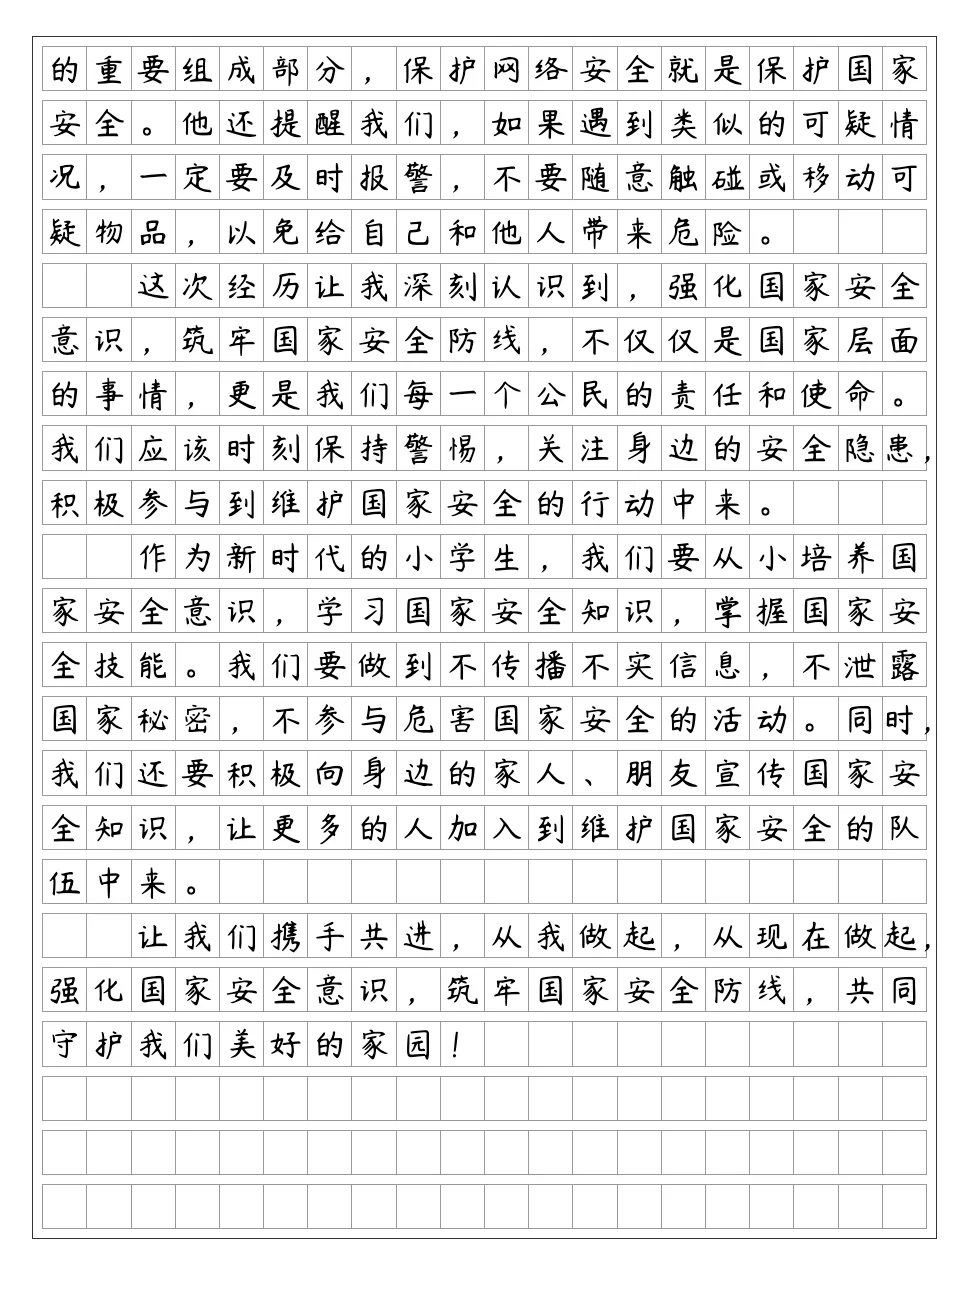 的重要组成部分，保护网络安全就是保护国家
安全。他还提醒我们，如果遇到类似的可疑情
况，一定要及时报警，不要随意触碰或移动可
疑物品，以免给自己和他人带来危险。
这次经历让我深刻认识到，强化国家安全
意识，筑牢国家安全防线，不仅仅是国家层面
的事情，更是我们每一个公民的责任和使命。
我们应该时刻保持警惕，关注身边的安全隐患，
积极参与到维护国家安全的行动中来。
作为新时代的小学生，我们要从小培养国
家安全意识，学习国家安全知识，掌握国家安
全技能。我们要做到不传播不实信息，不泄露
国家秘密，不参与危害国家安全的活动。同时，
我们还要积极向身边的家人、朋友宣传国家安
全知识，让更多的人加入到维护国家安全的队
伍中来。
让我们携手共进，从我做起，从现在做起，
强化国家安全意识，筑牢国家安全防线，共同
守护我们美好的家园！